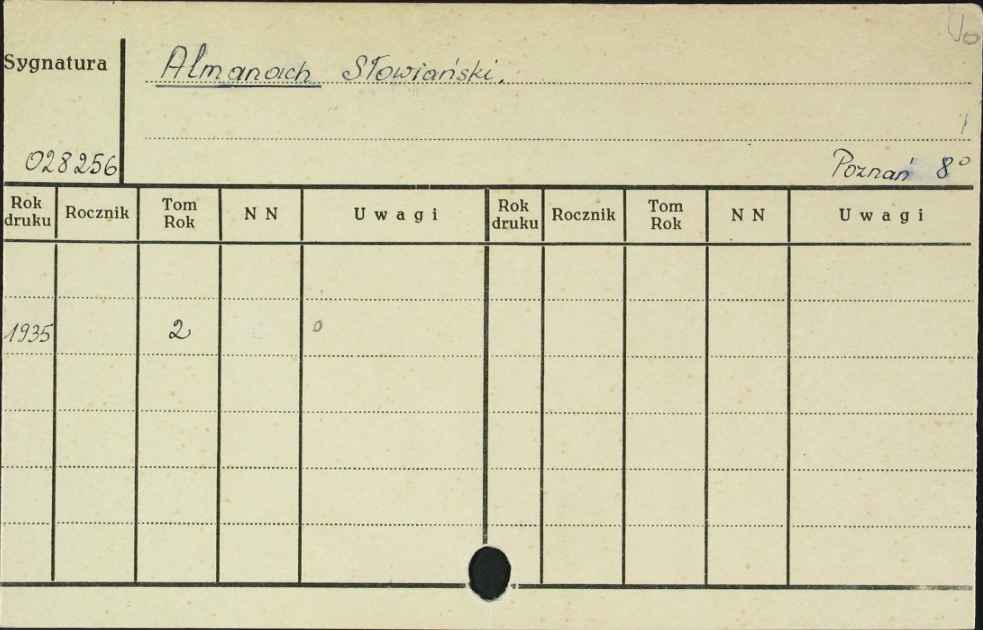 Sygnatura
Almanach Słowiański.
028256
Poznań 8°
Rok druku Rocznik Tom Rok N N Uwagi Rok druku Rocznik Tom Rok N N Uwagi
1935 2 o